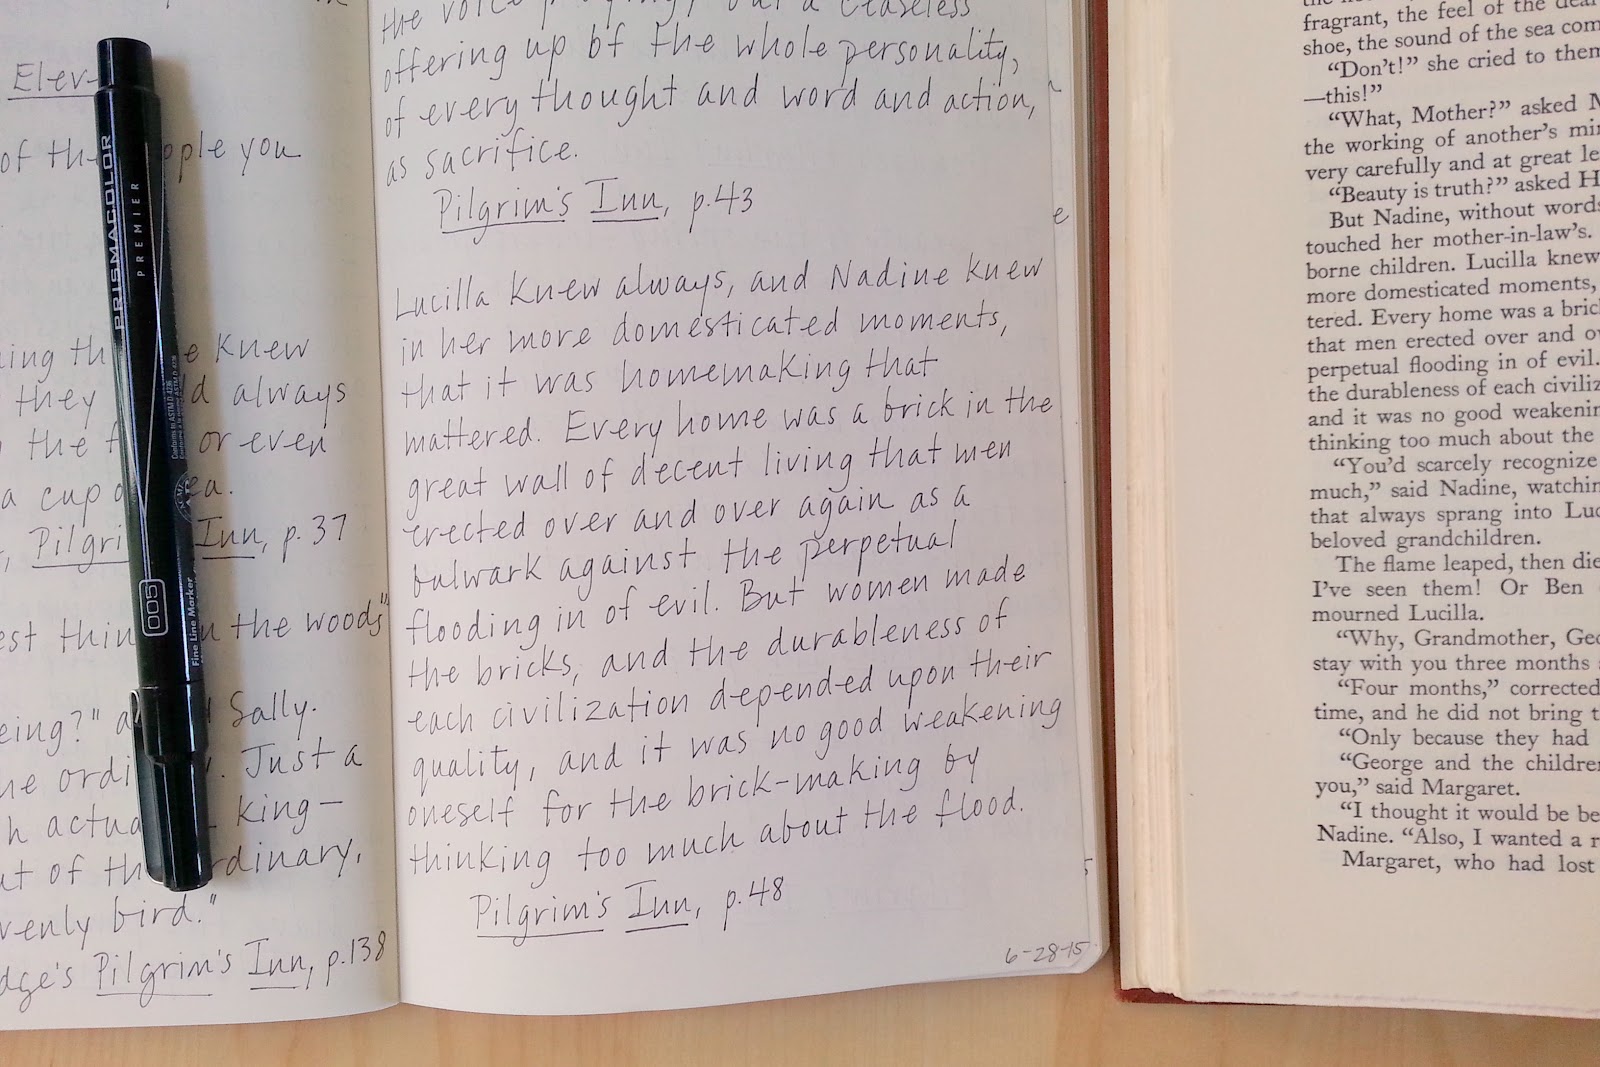 Elev
of the people you
ning th e knew
they d always
the f or even
a cup of tea.
Pilgri Inn, p. 37
est thin in the woods"
eing?" a Sally.
ne ordi . Just a
h actua king-
ut of th ordinary,
venly bird."
dge's Pilgrim's Inn, p.138
PRISMACOLOR
PREMIER
005
Fine Line Marker
Conforms to ASTM D 4236
the voice praying, but a ceaseless
offering up of the whole personality,
of every thought and word and action,
as sacrifice.
Pilgrim's Inn, p.43
Lucilla knew always, and Nadine knew
in her more domesticated moments,
that it was homemaking that
mattered. Every home was a brick in the
great wall of decent living that men
erected over and over again as a
bulwark against the perpetual
flooding in of evil. But women made
the bricks, and the durableness of
each civilization depended upon their
quality, and it was no good weakening
oneself for the brick-making by
thinking too much about the flood.
Pilgrim's Inn, p.48
6-28-15
e
fragrant, the feel of the dear
shoe, the sound of the sea com
"Don't!" she cried to them
—this!"
"What, Mother?" asked M
the working of another's min
very carefully and at great le
"Beauty is truth?" asked H
But Nadine, without words
touched her mother-in-law's.
borne children. Lucilla knew
more domesticated moments,
tered. Every home was a bric
that men erected over and ov
perpetual flooding in of evil.
the durableness of each civiliz
and it was no good weakenin
thinking too much about the
"You'd scarcely recognize
much," said Nadine, watchin
that always sprang into Luc
beloved grandchildren.
The flame leaped, then die
I've seen them! Or Ben
mourned Lucilla.
"Why, Grandmother, Geo
stay with you three months
"Four months," corrected
time, and he did not bring t
"Only because they had
"George and the children
you," said Margaret.
"I thought it would be be
Nadine. "Also, I wanted a r
Margaret, who had lost